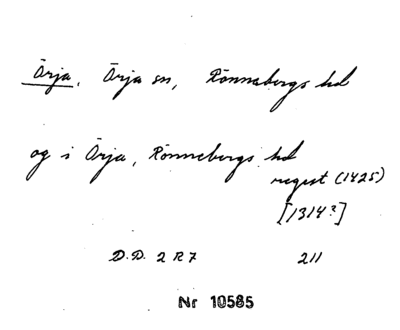 Örja, Örja sn, Rönnebergs hd
og i Örja, Rönnebergs hd
regest (1425)
[1314?]
D.D. 2 R 7 211
Nr 10585